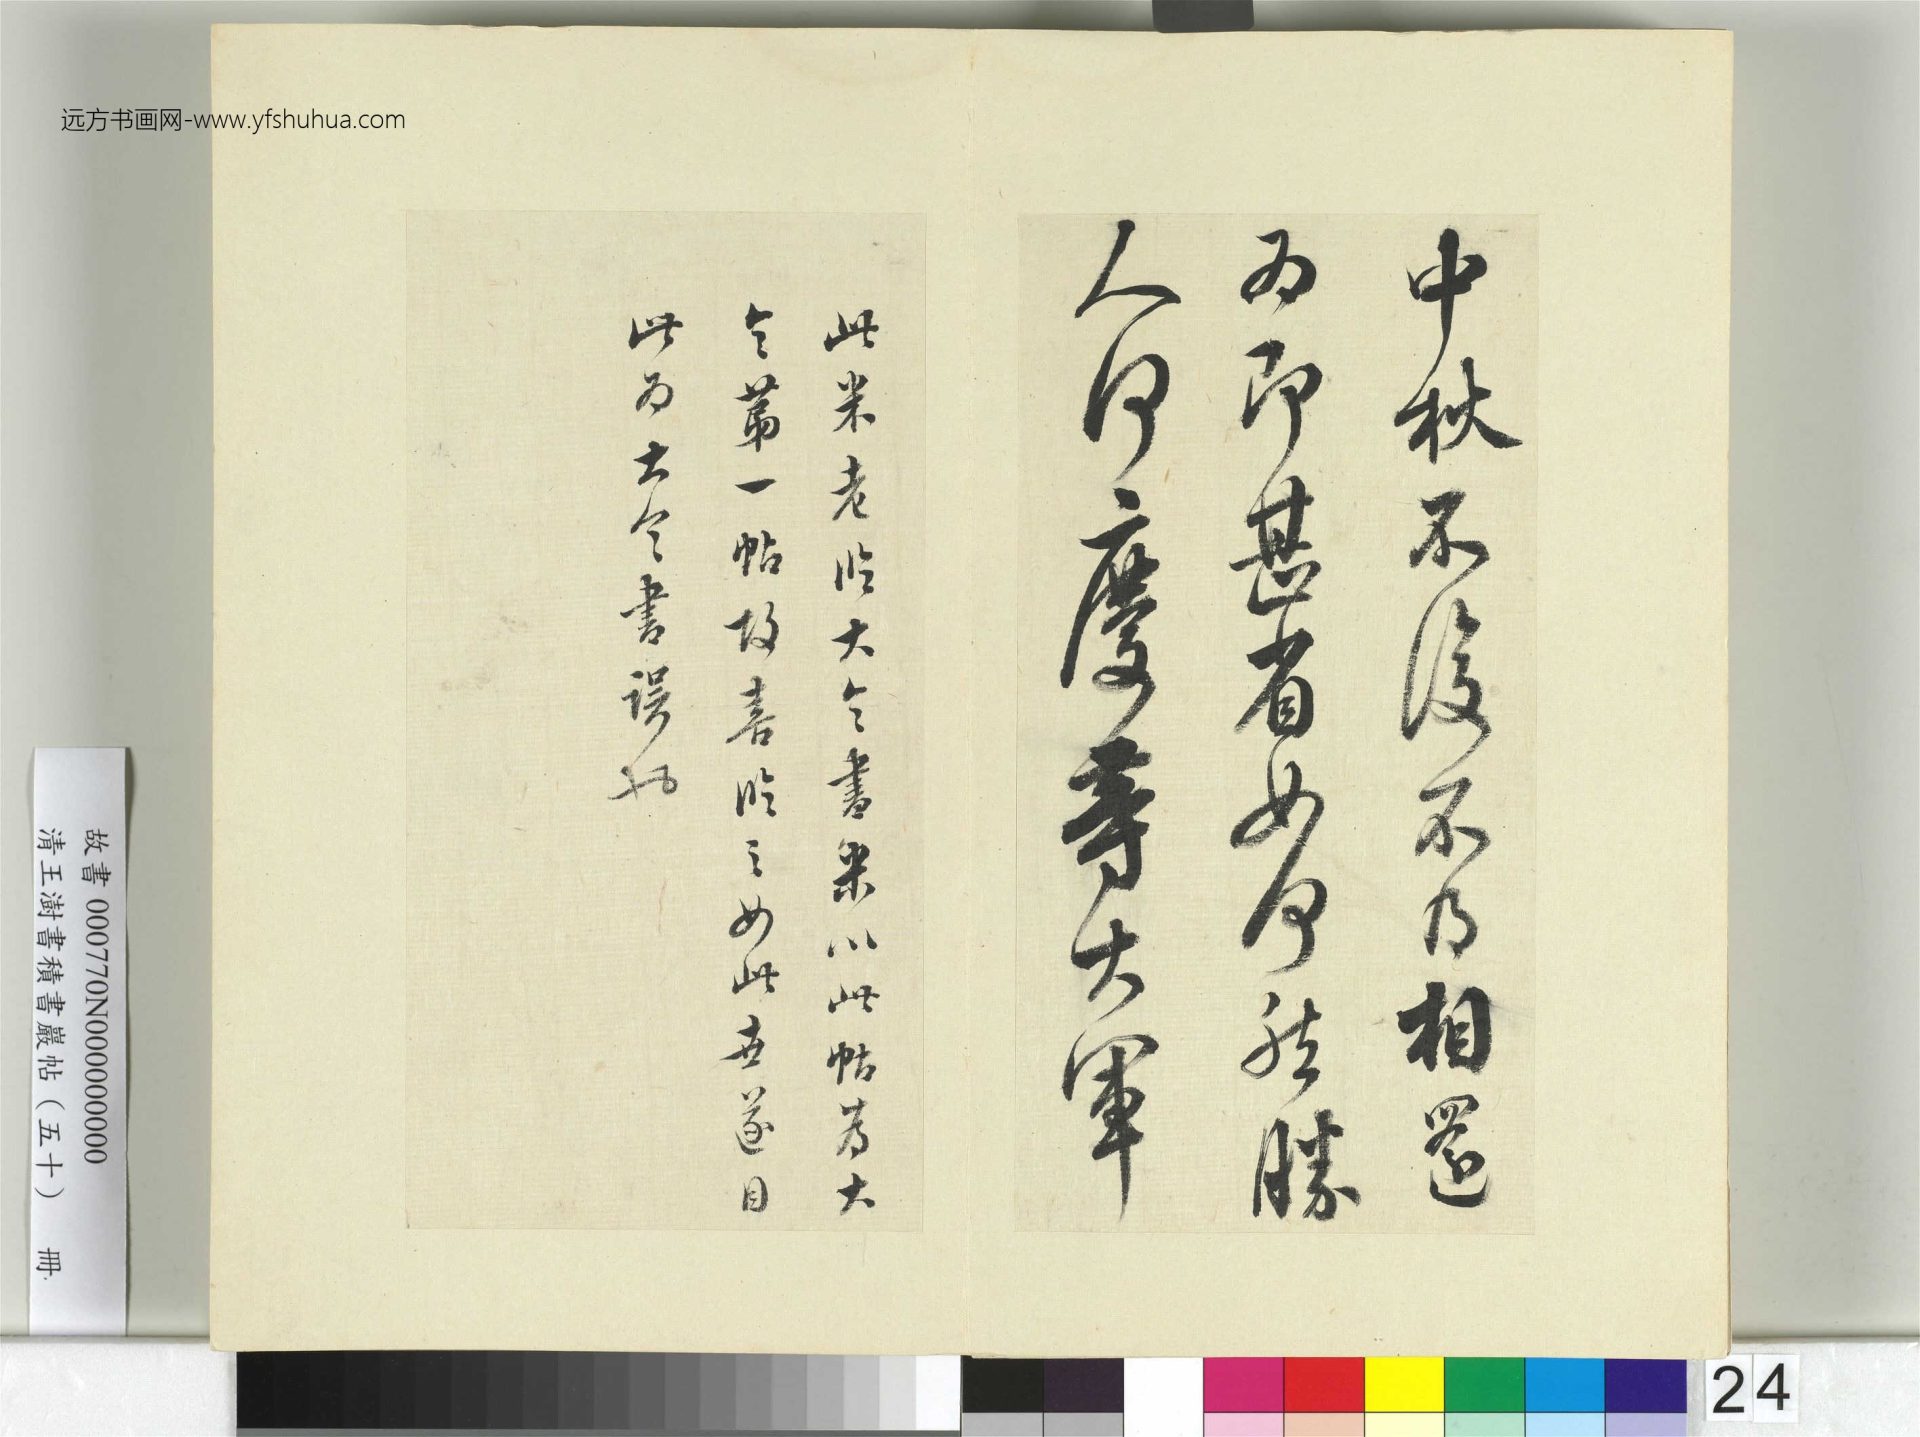 远方书画网-www.yfshuhua.com
中秋不復不得相還
為即甚省如何然勝
人何慶等大軍
此米老臨大令書米以此帖為大
令第一帖故喜臨之如此世遂目
此為大令書誤也
故書 000770N000000000
清王澍書積書巖帖(五十) 冊
24